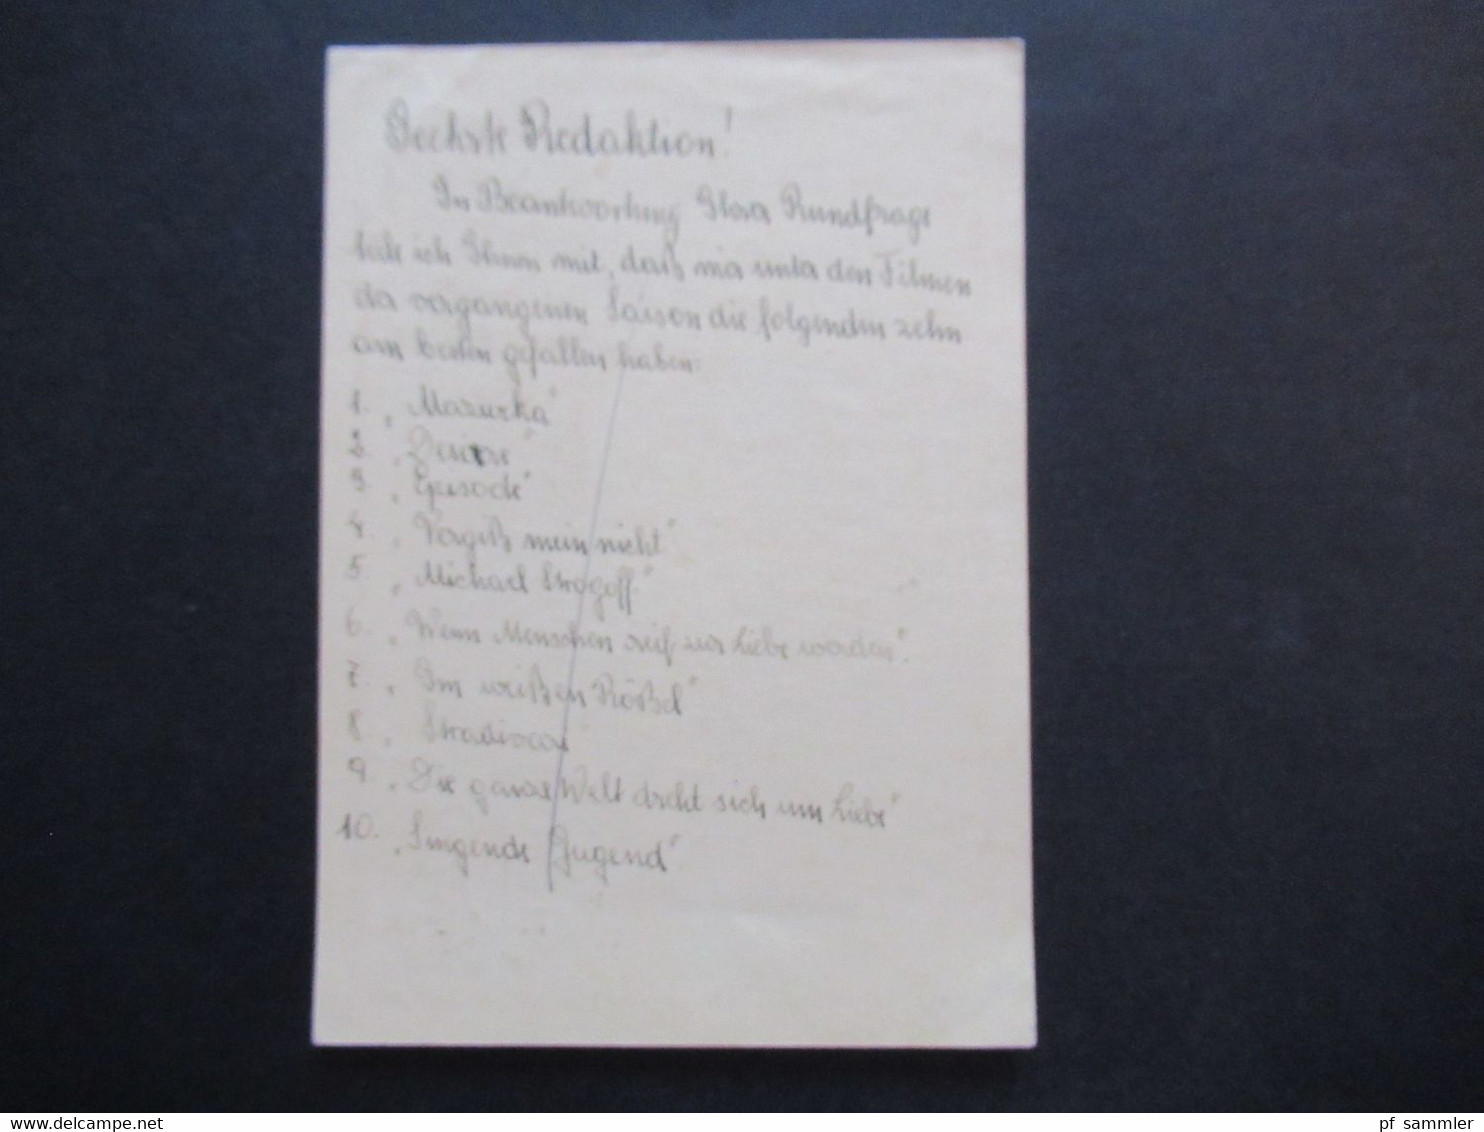 Geehrte Redaktion!
In Beantwortung Ihrer Rundfrage
teile ich Ihnen mit, daß mir unter den Filmen
der vergangenen Saison die folgenden zehn
am besten gefallen haben:
1. „Mazurka"
2. „Désirée"
3. „Episode"
4. „Vergiß mein nicht"
5. „Michael Strogoff"
6. „Wenn Menschen reif zur Liebe werden".
7. „Im weißen Rößel"
8. „Stradivari"
9. „Die ganze Welt dreht sich um Liebe"
10. „Singende Jugend"
www.delcampe.net
pf_sammler